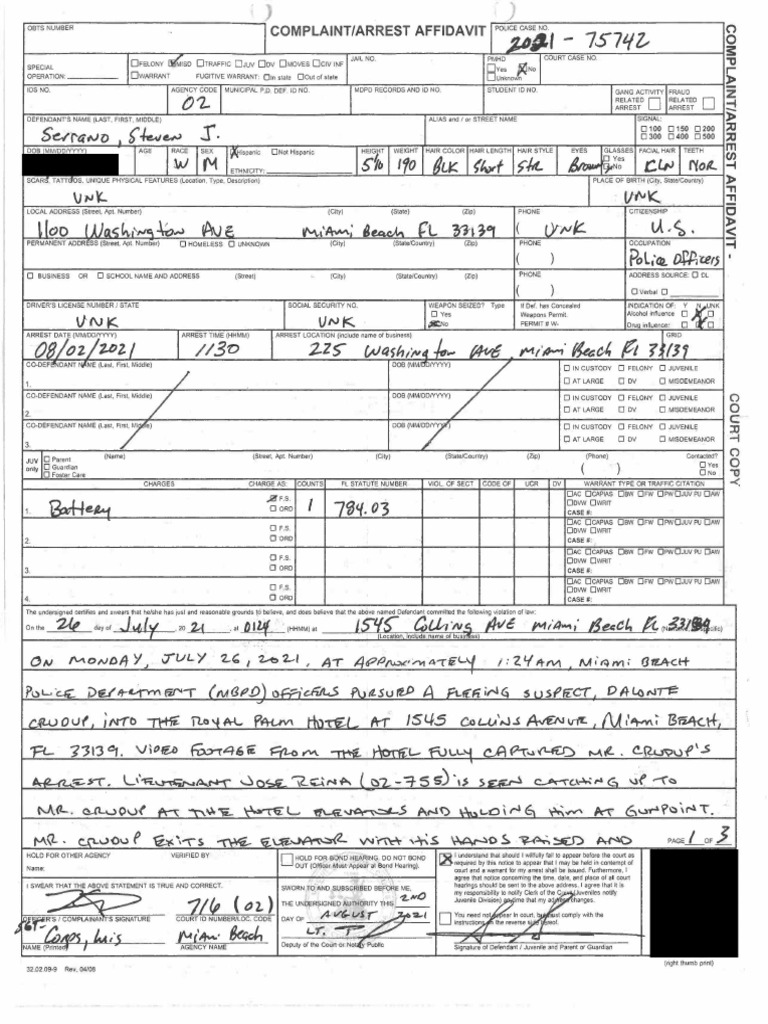 OBTS NUMBER
COMPLAINT/ARREST AFFIDAVIT
POLICE CASE NO.
2021-75742
SPECIAL OPERATION:
FELONY MISD TRAFFIC JUV DV MOVES CIV INF
WARRANT FUGITIVE WARRANT: In state Out of state
JAIL NO.
PMHD Yes No Unknown
COURT CASE NO.
IDS NO.
AGENCY CODE
02
MUNICIPAL P.D. DEF. ID NO.
MDPD RECORDS AND ID NO.
STUDENT ID NO.
GANG ACTIVITY RELATED ARREST
FRAUD RELATED ARREST
DEFENDANT'S NAME (LAST, FIRST, MIDDLE)
Serrano, Steven J.
ALIAS and / or STREET NAME
SIGNAL:
100 150 200
300 400 500
DOB (MM/DD/YYYY) AGE RACE SEX Hispanic Not Hispanic HEIGHT WEIGHT HAIR COLOR HAIR LENGTH HAIR STYLE EYES GLASSES FACIAL HAIR TEETH
W M ETHNICITY: 190 BLK Short STR Brown Yes No CLN NOR
SCARS, TATTOOS, UNIQUE PHYSICAL FEATURES (Location, Type, Description)
UNK
PLACE OF BIRTH (City, State/Country)
UNK
LOCAL ADDRESS (Street, Apt. Number) (City) (State) (Zip) PHONE CITIZENSHIP
1100 Washington AVE Miami Beach FL 33139 ( UNK U.S.
PERMANENT ADDRESS (Street, Apt. Number) HOMELESS UNKNOWN (City) (State/Country) (Zip) PHONE OCCUPATION
( ) Police Officers
BUSINESS OR SCHOOL NAME AND ADDRESS (Street) (City) (State/Country) (Zip) PHONE ADDRESS SOURCE: DL
( ) Verbal
DRIVER'S LICENSE NUMBER / STATE
UNK
SOCIAL SECURITY NO.
UNK
WEAPON SEIZED? Type
Yes
No
If Def. has Concealed Weapons Permit. PERMIT # W-
INDICATION OF: Y N UNK
Alcohol influence
Drug influence:
ARREST DATE (MM/DD/YYYY) ARREST TIME (HHMM) ARREST LOCATION (include name of business) GRID
08/02/2021 1130 225 Washington AVE, Miami Beach Fl 33139
CO-DEFENDANT NAME (Last, First, Middle) DOB (MM/DD/YYYY) IN CUSTODY FELONY JUVENILE
1. AT LARGE DV MISDEMEANOR
CO-DEFENDANT NAME (Last, First, Middle) DOB (MM/DD/YYYY) IN CUSTODY FELONY JUVENILE
2. AT LARGE DV MISDEMEANOR
CO-DEFENDANT NAME (Last, First, Middle) DOB (MM/DD/YYYY) IN CUSTODY FELONY JUVENILE
3. AT LARGE DV MISDEMEANOR
JUV only Parent Guardian Foster Care (Name) (Street, Apt. Number) (City) (State/Country) (Zip) (Phone) Contacted?
( ) Yes No
CHARGES CHARGE AS: COUNTS FL STATUTE NUMBER VIOL. OF SECT CODE OF UCR DV WARRANT TYPE OR TRAFFIC CITATION
1. Battery F.S. ORD 1 784.03 AC CAPIAS BW FW PW JUV PU AW
DVW WRIT
CASE #:
2. F.S. ORD AC CAPIAS BW FW PW JUV PU AW
DVW WRIT
CASE #:
3. F.S. ORD AC CAPIAS BW FW PW JUV PU AW
DVW WRIT
CASE #:
4. F.S. ORD AC CAPIAS BW FW PW JUV PU AW
DVW WRIT
CASE #:
The undersigned certifies and swears that he/she has just and reasonable grounds to believe, and does believe that the above named Defendant committed the following violation of law:
On the 26 day of July 2021, at 0124 (HHMM) at 1545 Collins AVE Miami Beach Fl 33139
(Location, include name of business)
ON MONDAY, JULY 26, 2021, AT APPROXIMATELY 1:24AM, MIAMI BEACH
POLICE DEPARTMENT (MBPD) OFFICERS PURSUED A FLEEING SUSPECT, DALONTE
CRUDUP, INTO THE ROYAL PALM HOTEL AT 1545 COLLINS AVENUE, MIAMI BEACH,
FL 33139. VIDEO FOOTAGE FROM THE HOTEL FULLY CAPTURED MR. CRUDUP'S
ARREST. LIEUTENANT JOSE REINA (02-755) IS SEEN CATCHING UP TO
MR. CRUDUP AT THE HOTEL ELEVATORS AND HOLDING HIM AT GUNPOINT.
MR. CRUDUP EXITS THE ELEVATOR WITH HIS HANDS RAISED AND
PAGE 1 OF 3
HOLD FOR OTHER AGENCY VERIFIED BY
Name:
HOLD FOR BOND HEARING. DO NOT BOND OUT (Officer Must Appear at Bond Hearing).
I understand that should I willfully fail to appear before the court as required by this notice to appear that I may be held in contempt of court and a warrant for my arrest shall be issued. Furthermore, I agree that notice concerning the time, date, and place of all court hearings should be sent to the above address. I agree that it is my responsibility to notify Clerk of the Court (Juveniles notify Juvenile Division) anytime that my address changes.
I SWEAR THAT THE ABOVE STATEMENT IS TRUE AND CORRECT.
716 (02)
OFFICER'S / COMPLAINANT'S SIGNATURE COURT ID NUMBER/LOC. CODE
SGT. Corps, Luis Miami Beach
NAME (Printed) AGENCY NAME
SWORN TO AND SUBSCRIBED BEFORE ME,
THE UNDERSIGNED AUTHORITY THIS 2ND
DAY OF AUGUST 2021
LT.
Deputy of the Court or Notary Public
You need not appear in court, but must comply with the instructions on the reverse side hereof.
Signature of Defendant / Juvenile and Parent or Guardian
(right thumb print)
32.02.09-9 Rev. 04/08
COMPLAINT/ARREST AFFIDAVIT - COMPLAINT/ARREST AFFIDAVIT -
COURT COPY